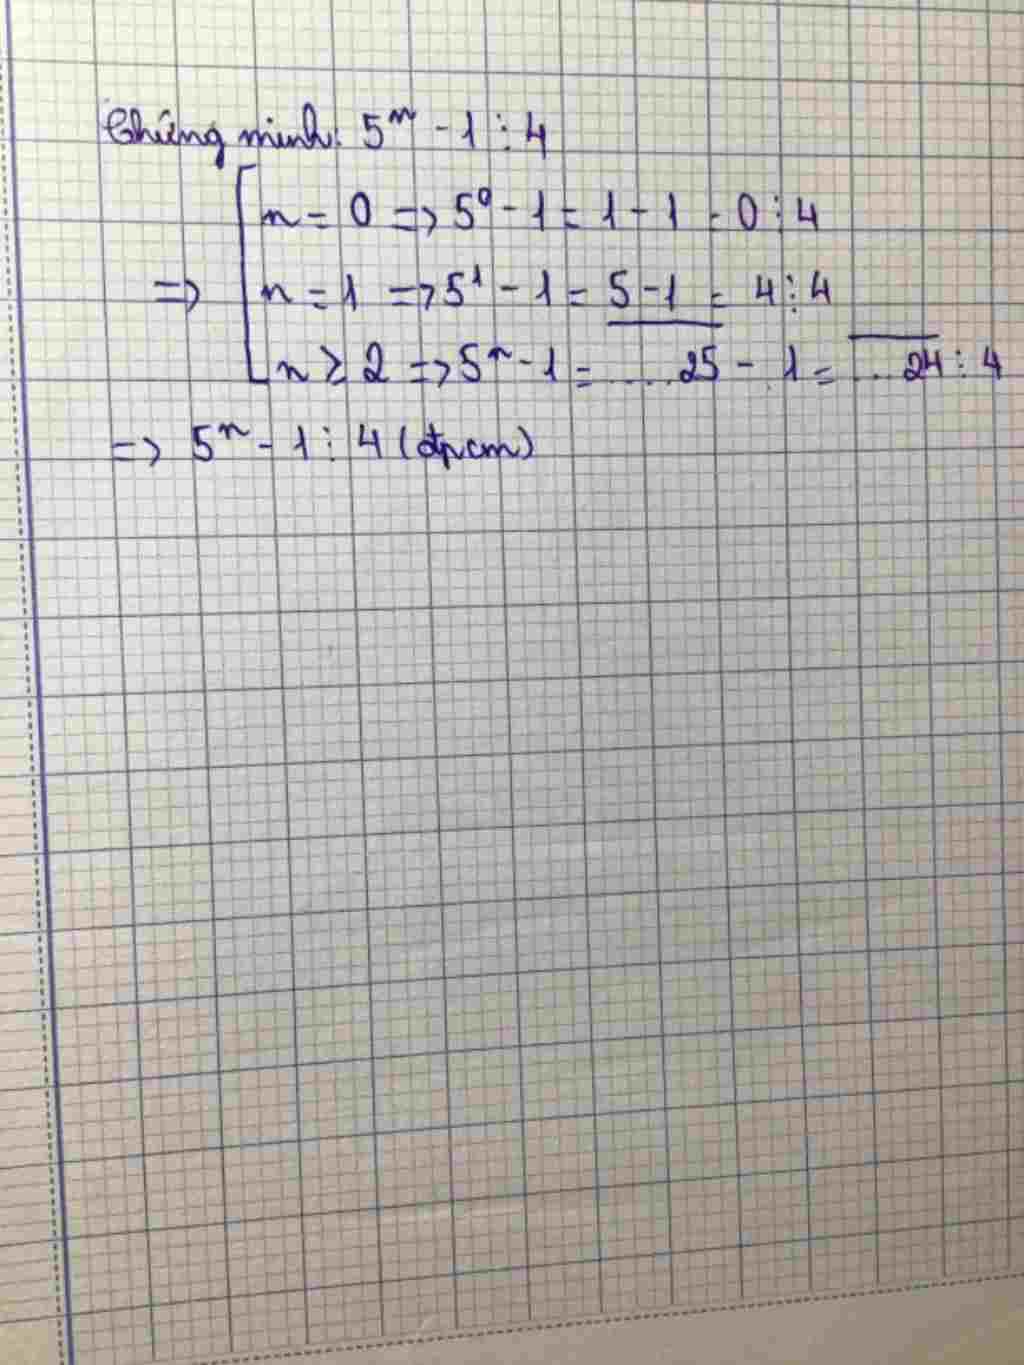 Chứng minh: 5ⁿ - 1 ⋮ 4
n = 0 => 5⁰ - 1 = 1 - 1 = 0 ⋮ 4
=> n = 1 => 5¹ - 1 = 5 - 1 = 4 ⋮ 4
n ≥ 2 => 5ⁿ - 1 = ....25 - 1 = ...24 ⋮ 4
=> 5ⁿ - 1 ⋮ 4 (đpcm)